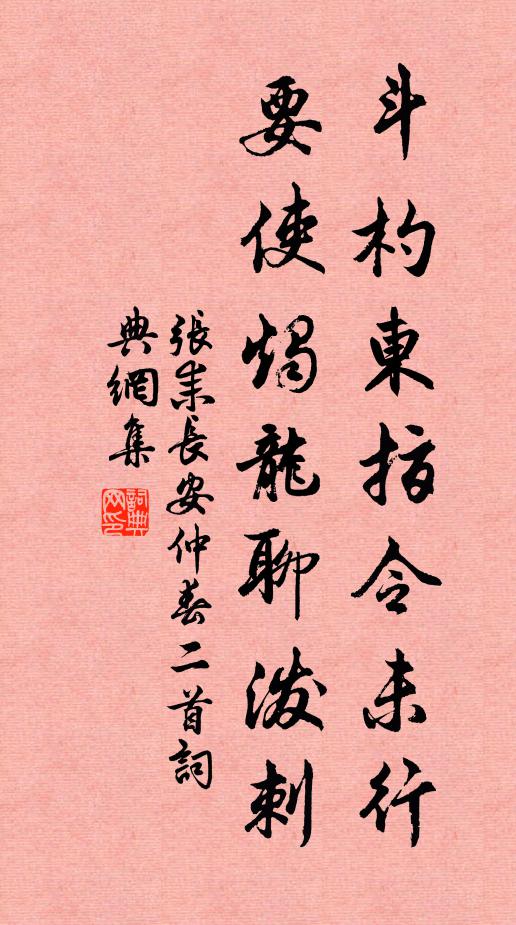 斗杓東指令未行
要使燭龍聊潑剌
張耒長安仲春二首詞
典網集
詞典
网印